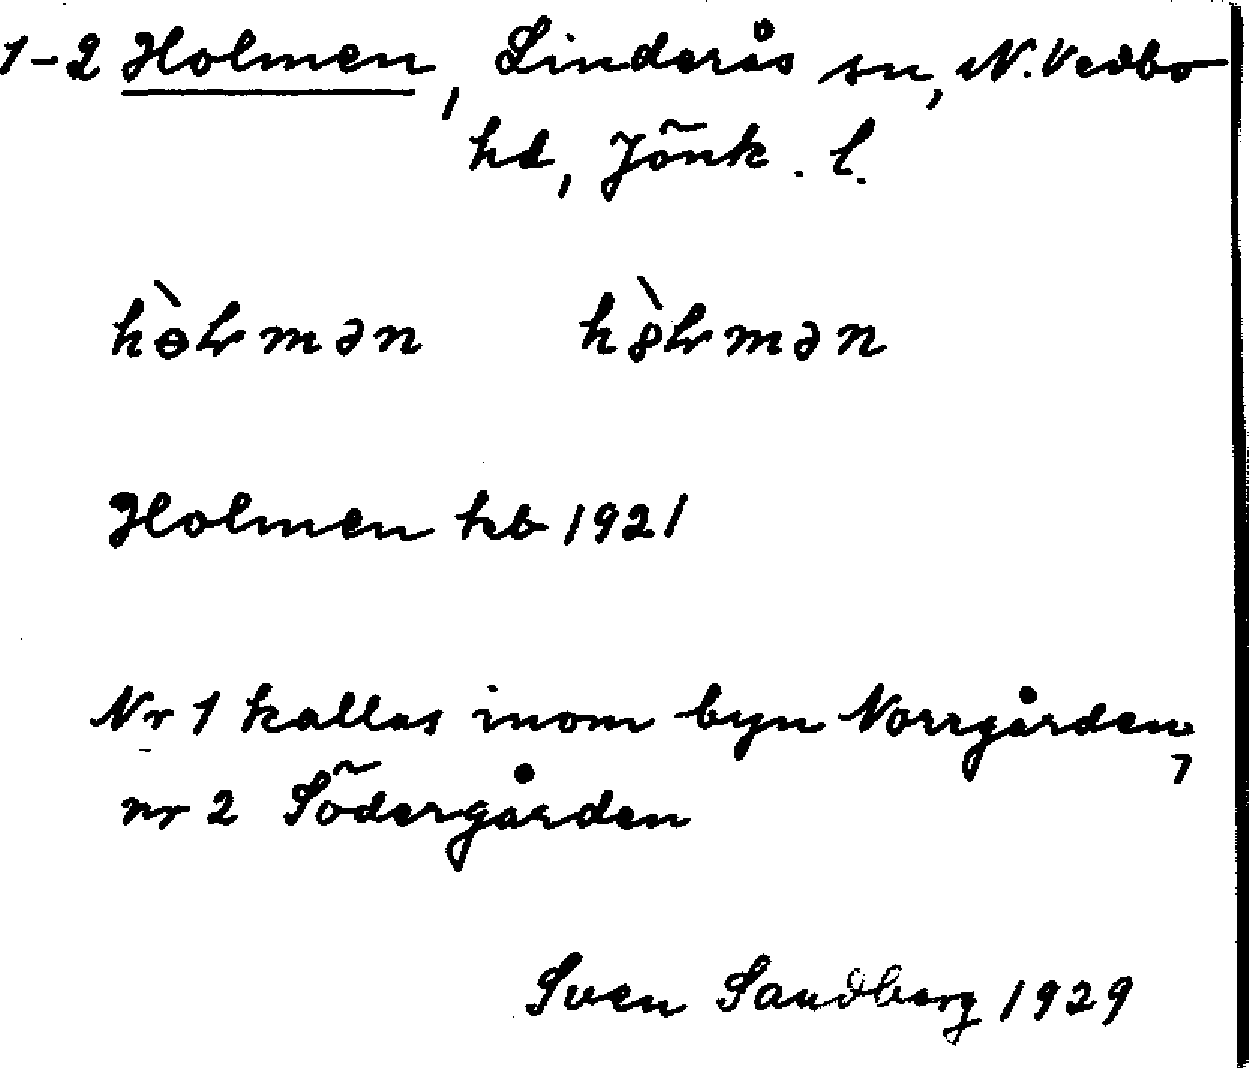 1-2 Holmen, Linderås sn, N. Vedbo
hd, Jönk. l.
Holmen kb 1921
Nr 1 kallas inom byn Norrgården,
nr 2 Södergården
Sven Sandberg 1929